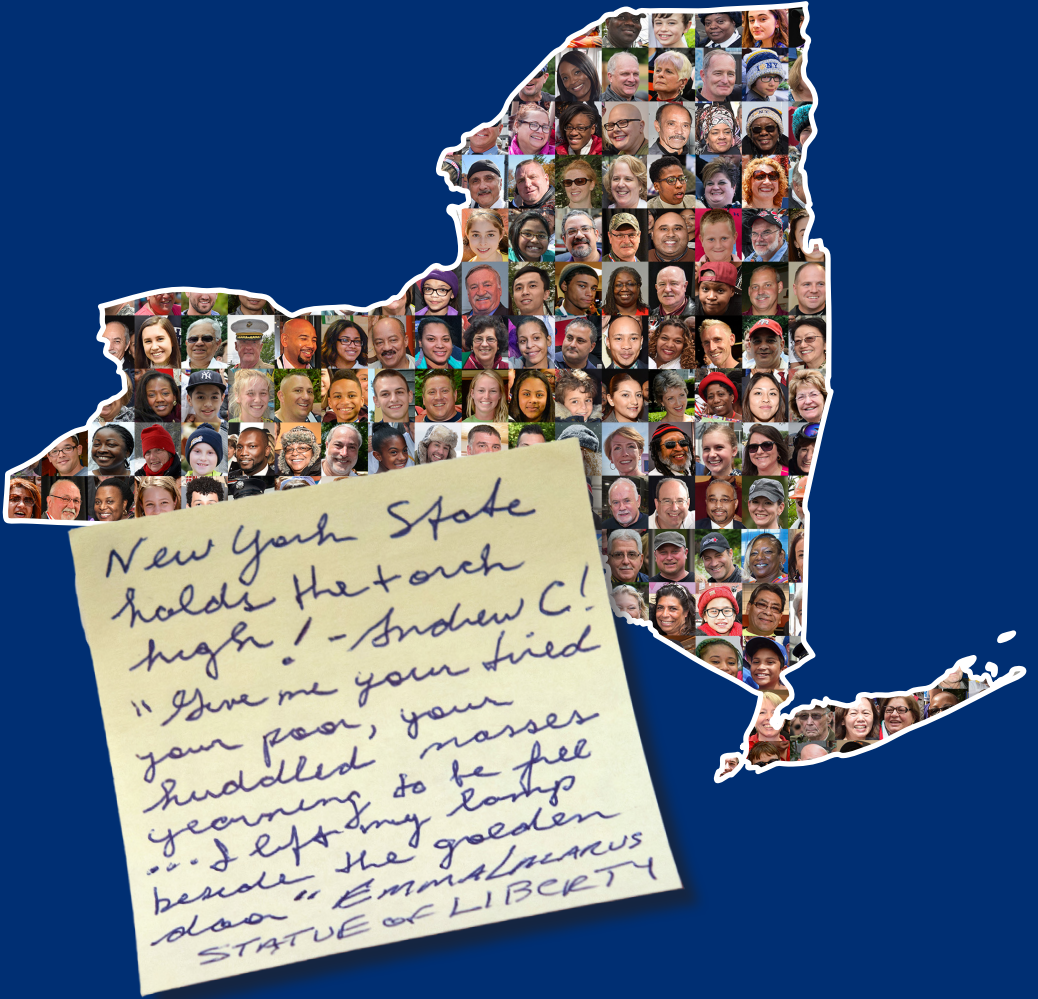 New York State
holds the torch
high! - Andrew C!
"Give me your tired
your poor, your
huddled masses
yearning to be free
...I left my lamp
beside the golden
door" EMMA LAZARUS
STATUE OF LIBERTY